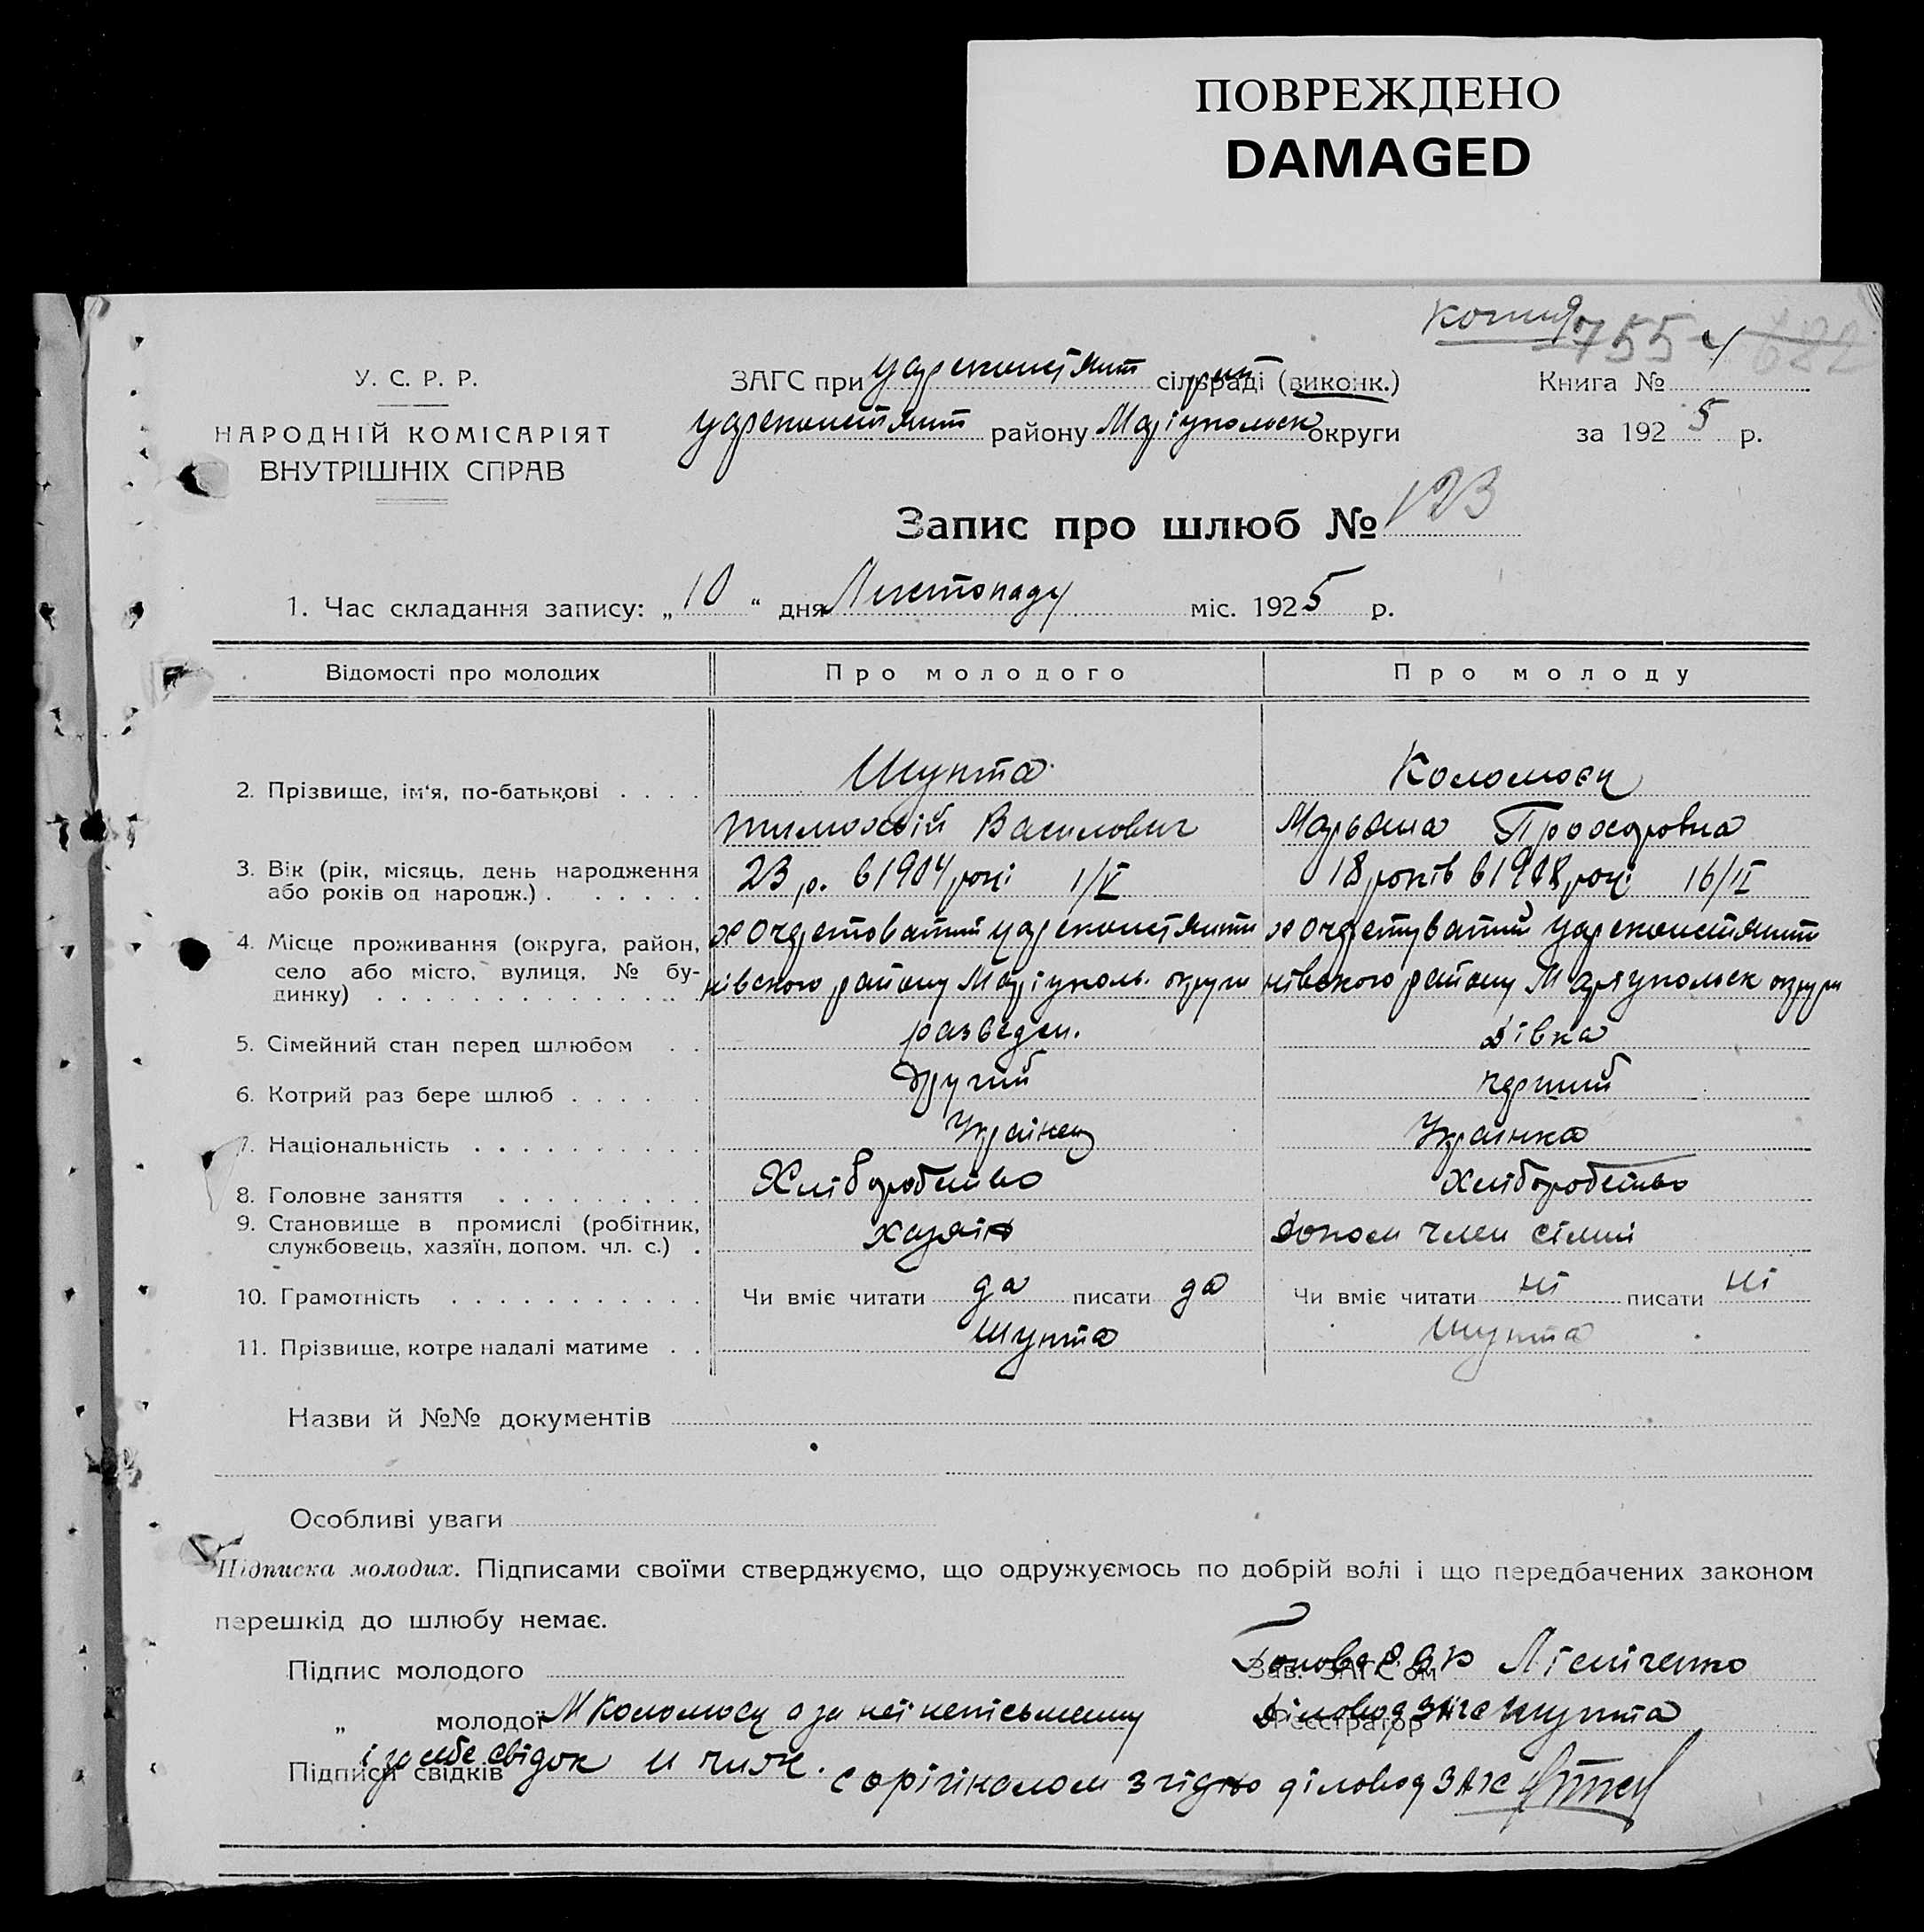 ПОВРЕЖДЕНО
DAMAGED
Копия 755 682
У. С. Р. Р.
НАРОДНІЙ КОМІСАРІЯТ
ВНУТРІШНІХ СПРАВ
ЗАГС при Цареконстянт сільраді (виконк.)
Цареконстянт району Маріупольск округи
Книга №
за 1925 р.
Запис про шлюб № 123
1. Час складання запису: „10“ дня Листопаду міс. 1925 р.
Відомості про молодих Про молодого Про молоду
2. Прізвище, ім'я, по-батькові . . . . Шупта Коломоєц
Тимохвій Василович Марьяна Прохоровна
3. Вік (рік, місяць, день народження 23 р. в 1904 році 1/V 18 років в 1908 році 16/II
або років од народж.) . . . . . . .
4. Місце проживання (округа, район, х Очеретоватий Цареконстянти х Очеретуватий Цареконстянти
село або місто, вулиця, № бу- нівского району Маріуполь. округи нівского району Маряупольск округи
динку) . . . . . . . . . . . . . . .
5. Сімейний стан перед шлюбом . . разведен. Дівка
6. Котрий раз бере шлюб . . . . . . Другий перший
7. Національність . . . . . . . . . . Українец Українка
8. Головне заняття . . . . . . . . . Хліборобство Хліборобство
9. Становище в промислі (робітник,
службовець, хазяїн, допом. чл. с.) . хазяін допом член сімии
10. Грамотність . . . . . . . . . . . Чи вміє читати да писати да Чи вміє читати ні писати ні
11. Прізвище, котре надалі матиме . . Шупта Шупта
Назви й №№ документів
Особливі уваги
Підписка молодих. Підписами своїми стверджуємо, що одружуємось по добрій волі і що передбачених законом
перешкід до шлюбу немає.
Підпис молодого Зав. ЗАГС'ом Лісніченко
„ молодої М Коломоєц а за неї неписьменну Реєстратор Діловод ЗАГС Шупта
Підписи свідків і за себе свідок И Чиж.
с орігіналом згідно діловод ЗАГС